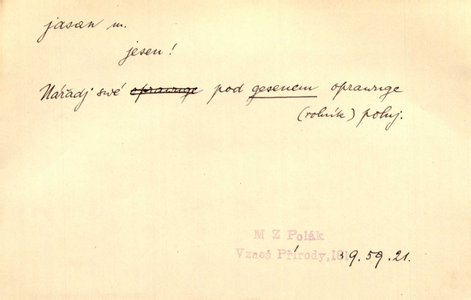 jasan m.
jesen!
Nářadj swé oprawuge pod gesenem oprawuge
(rolník) poluj.
M Z Polák
Vzneš Přírody, 1819. 59. 21.